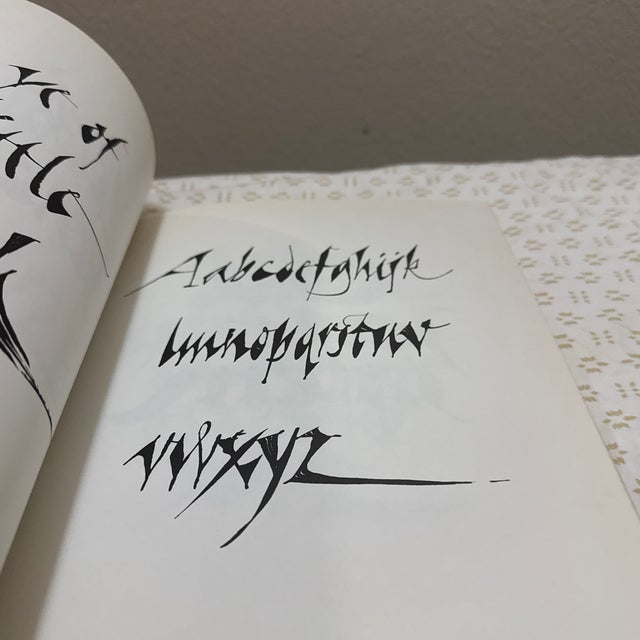 of
Aabcdefghijk
lmnopqrstuv
vwxyz